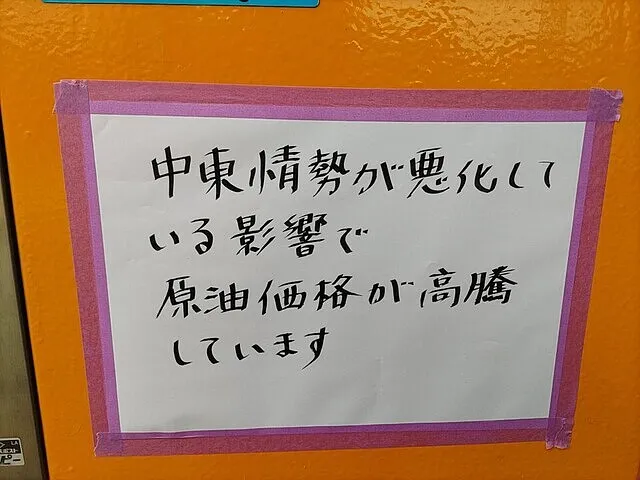 中東情勢が悪化して
いる影響で
原油価格が高騰
しています